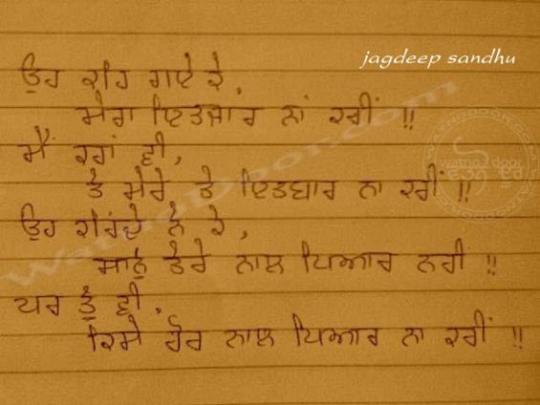 jagdeep sandhu
ਉਹ ਕਹਿ ਗਏ ਕੇ,
ਮੇਰਾ ਇੰਤਜਾਰ ਨਾਂ ਕਰੀਂ !!
ਮੈਂ ਕਹਾਂ ਵੀ,
ਤੇ ਮੇਰੇ ਤੇ ਇਤਬਾਰ ਨਾ ਕਰੀਂ !!
ਉਹ ਕਹਿੰਦੇ ਨੇ ਕੇ,
ਸਾਨੂੰ ਤੇਰੇ ਨਾਲ ਪਿਆਰ ਨਹੀ !!
ਪਰ ਤੂੰ ਵੀ,
ਕਿਸੇ ਹੋਰ ਨਾਲ ਪਿਆਰ ਨਾ ਕਰੀਂ !!
watno door
ਵਤਨੋਂ ਦੂਰ
WatnoDoor.com